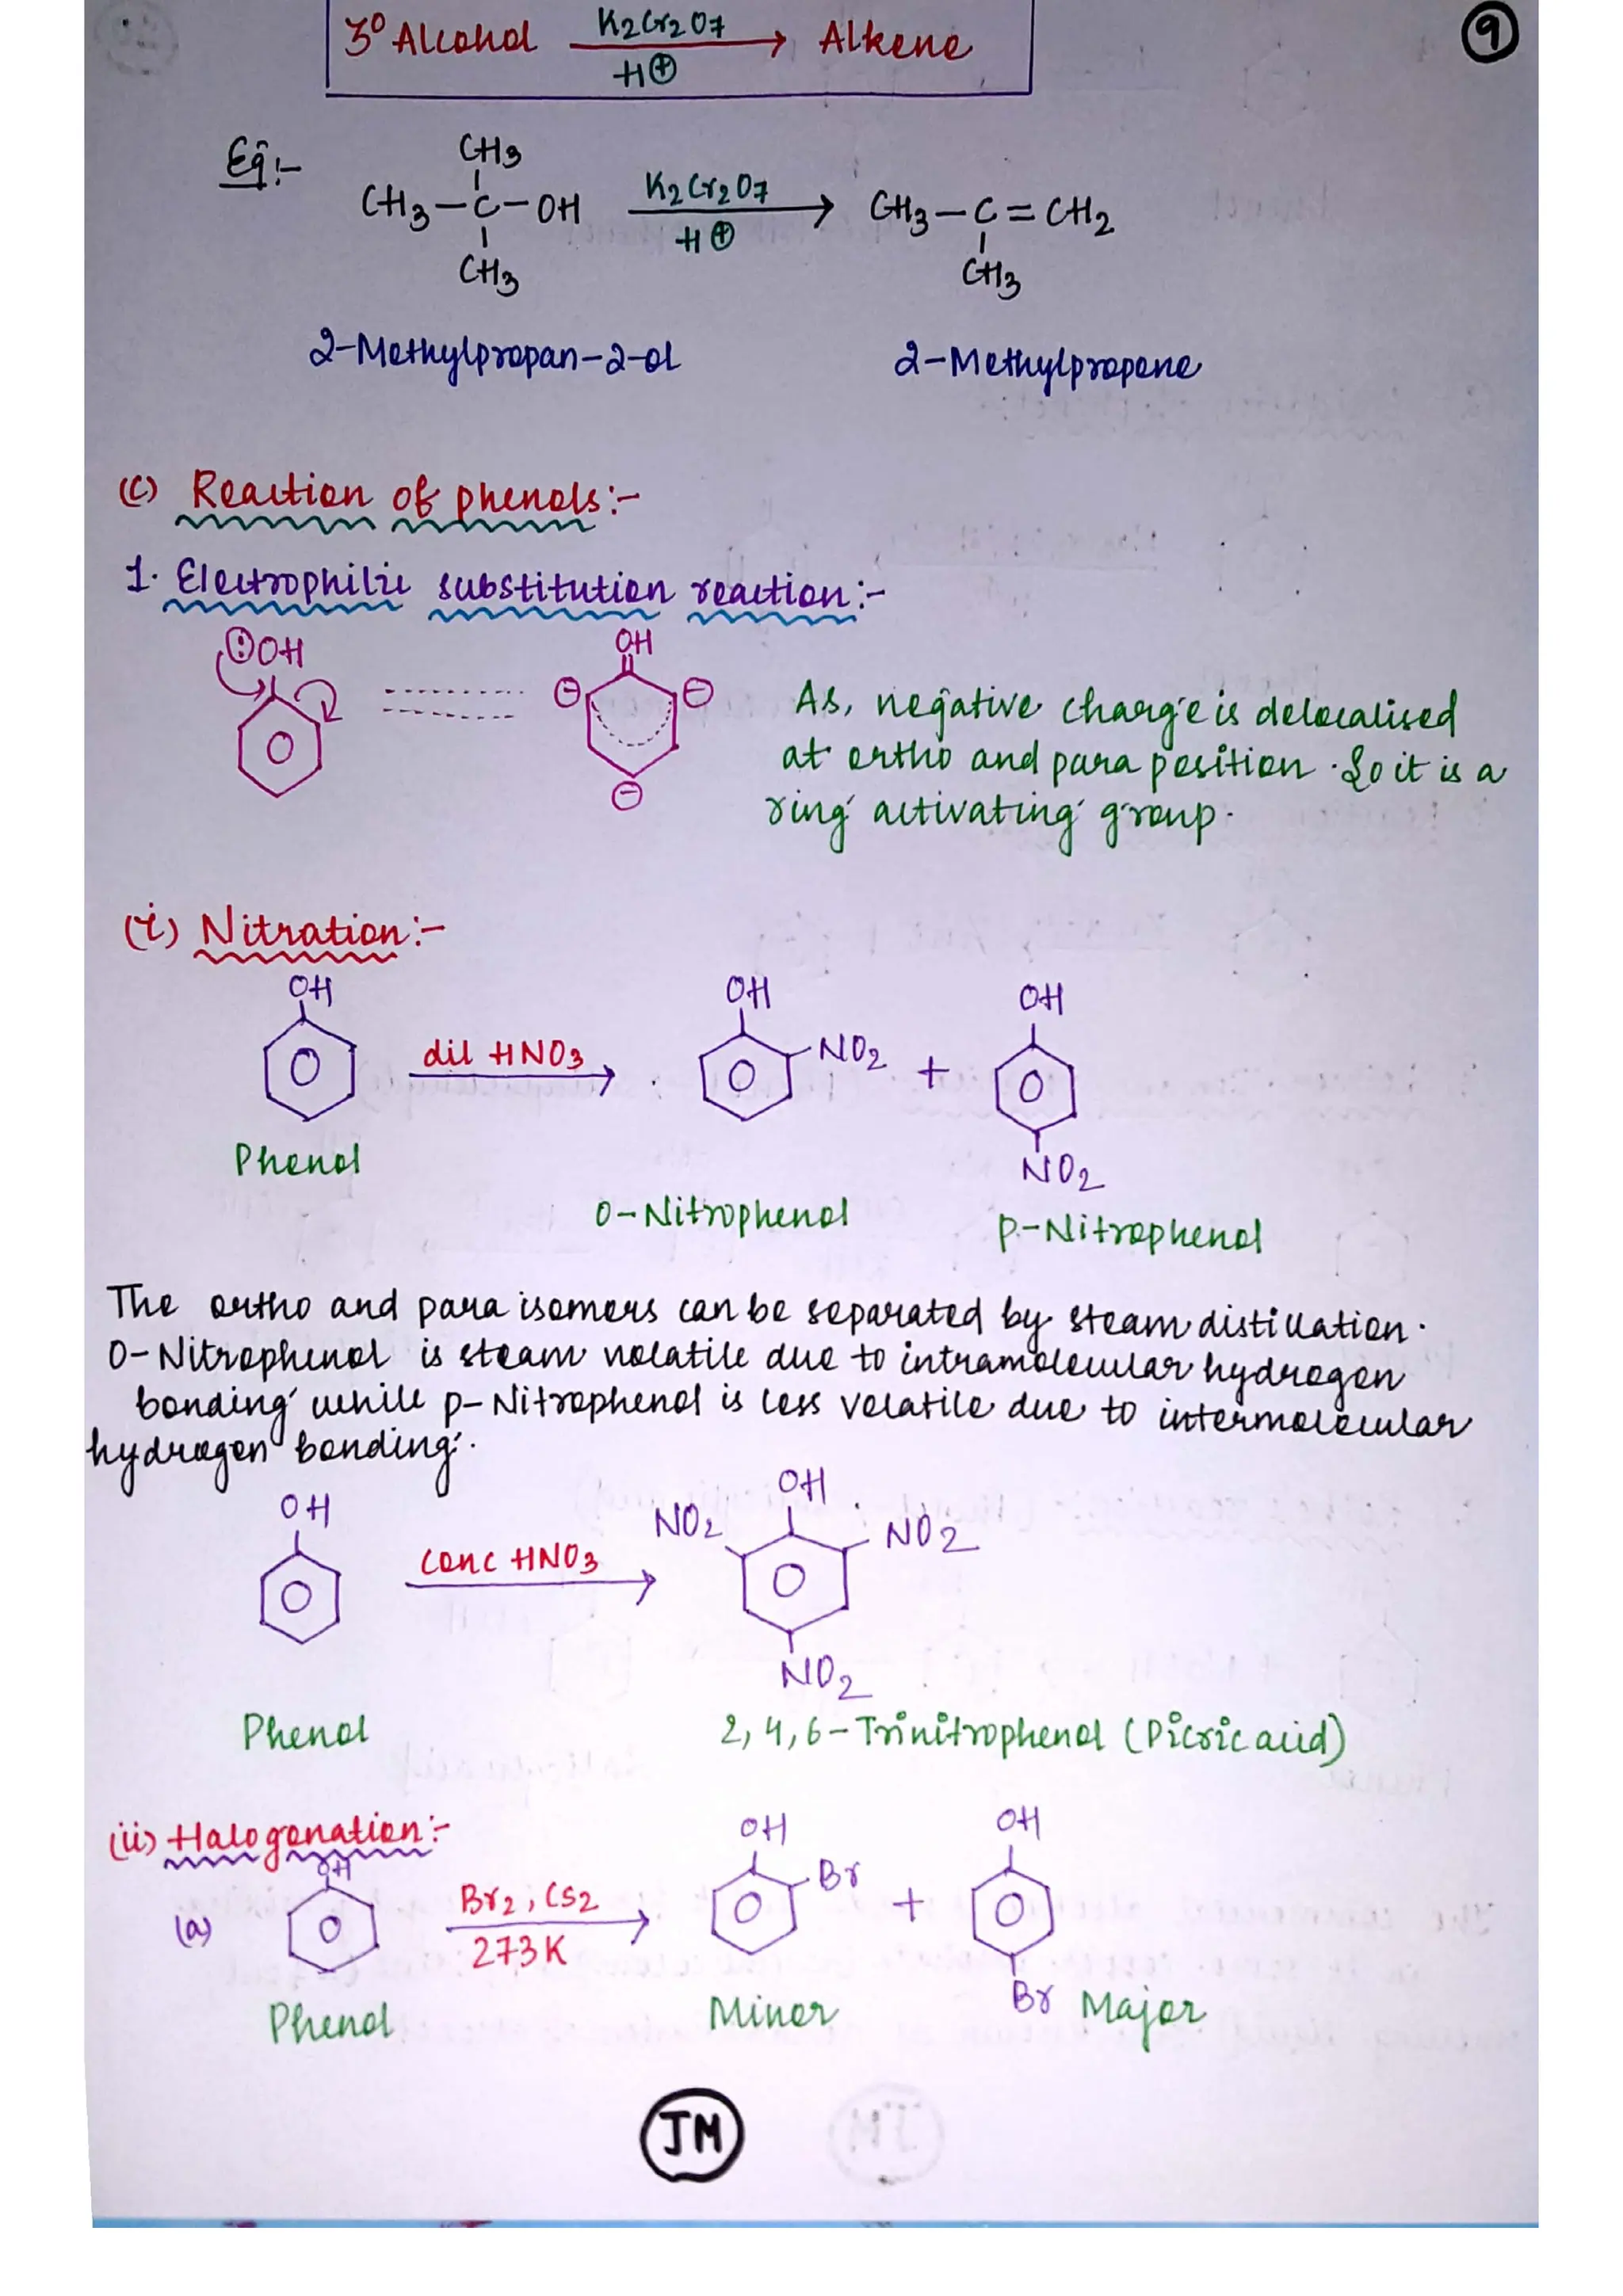 3° Alcohol K2Cr2O7 → Alkene
H⊕
9
Eg:-
CH3
CH3-C-OH K2Cr2O7 → CH3-C=CH2
H⊕
CH3 CH3
2-Methylpropan-2-ol 2-Methylpropene
(C) Reaction of phenols:-
1. Electrophilic substitution reaction:-
OH OH
⊖ ⊖
⊖
As, negative charge is delocalised
at ortho and para position. So it is a
ring activating group.
(i) Nitration:-
OH OH OH
dil HNO3 → NO2 +
NO2
Phenol
o-Nitrophenol p-Nitrophenol
The ortho and para isomers can be separated by steam distillation.
O-Nitrophenol is steam volatile due to intramolecular hydrogen
bonding while p-Nitrophenol is less volatile due to intermolecular
hydrogen bonding.
OH OH
NO2 NO2
conc HNO3 →
NO2
Phenol 2,4,6-Trinitrophenol (Picric acid)
(ii) Halogenation:-
OH OH OH
(a) Br2, CS2 → Br +
273K
Br
Phenol Minor Major
JM